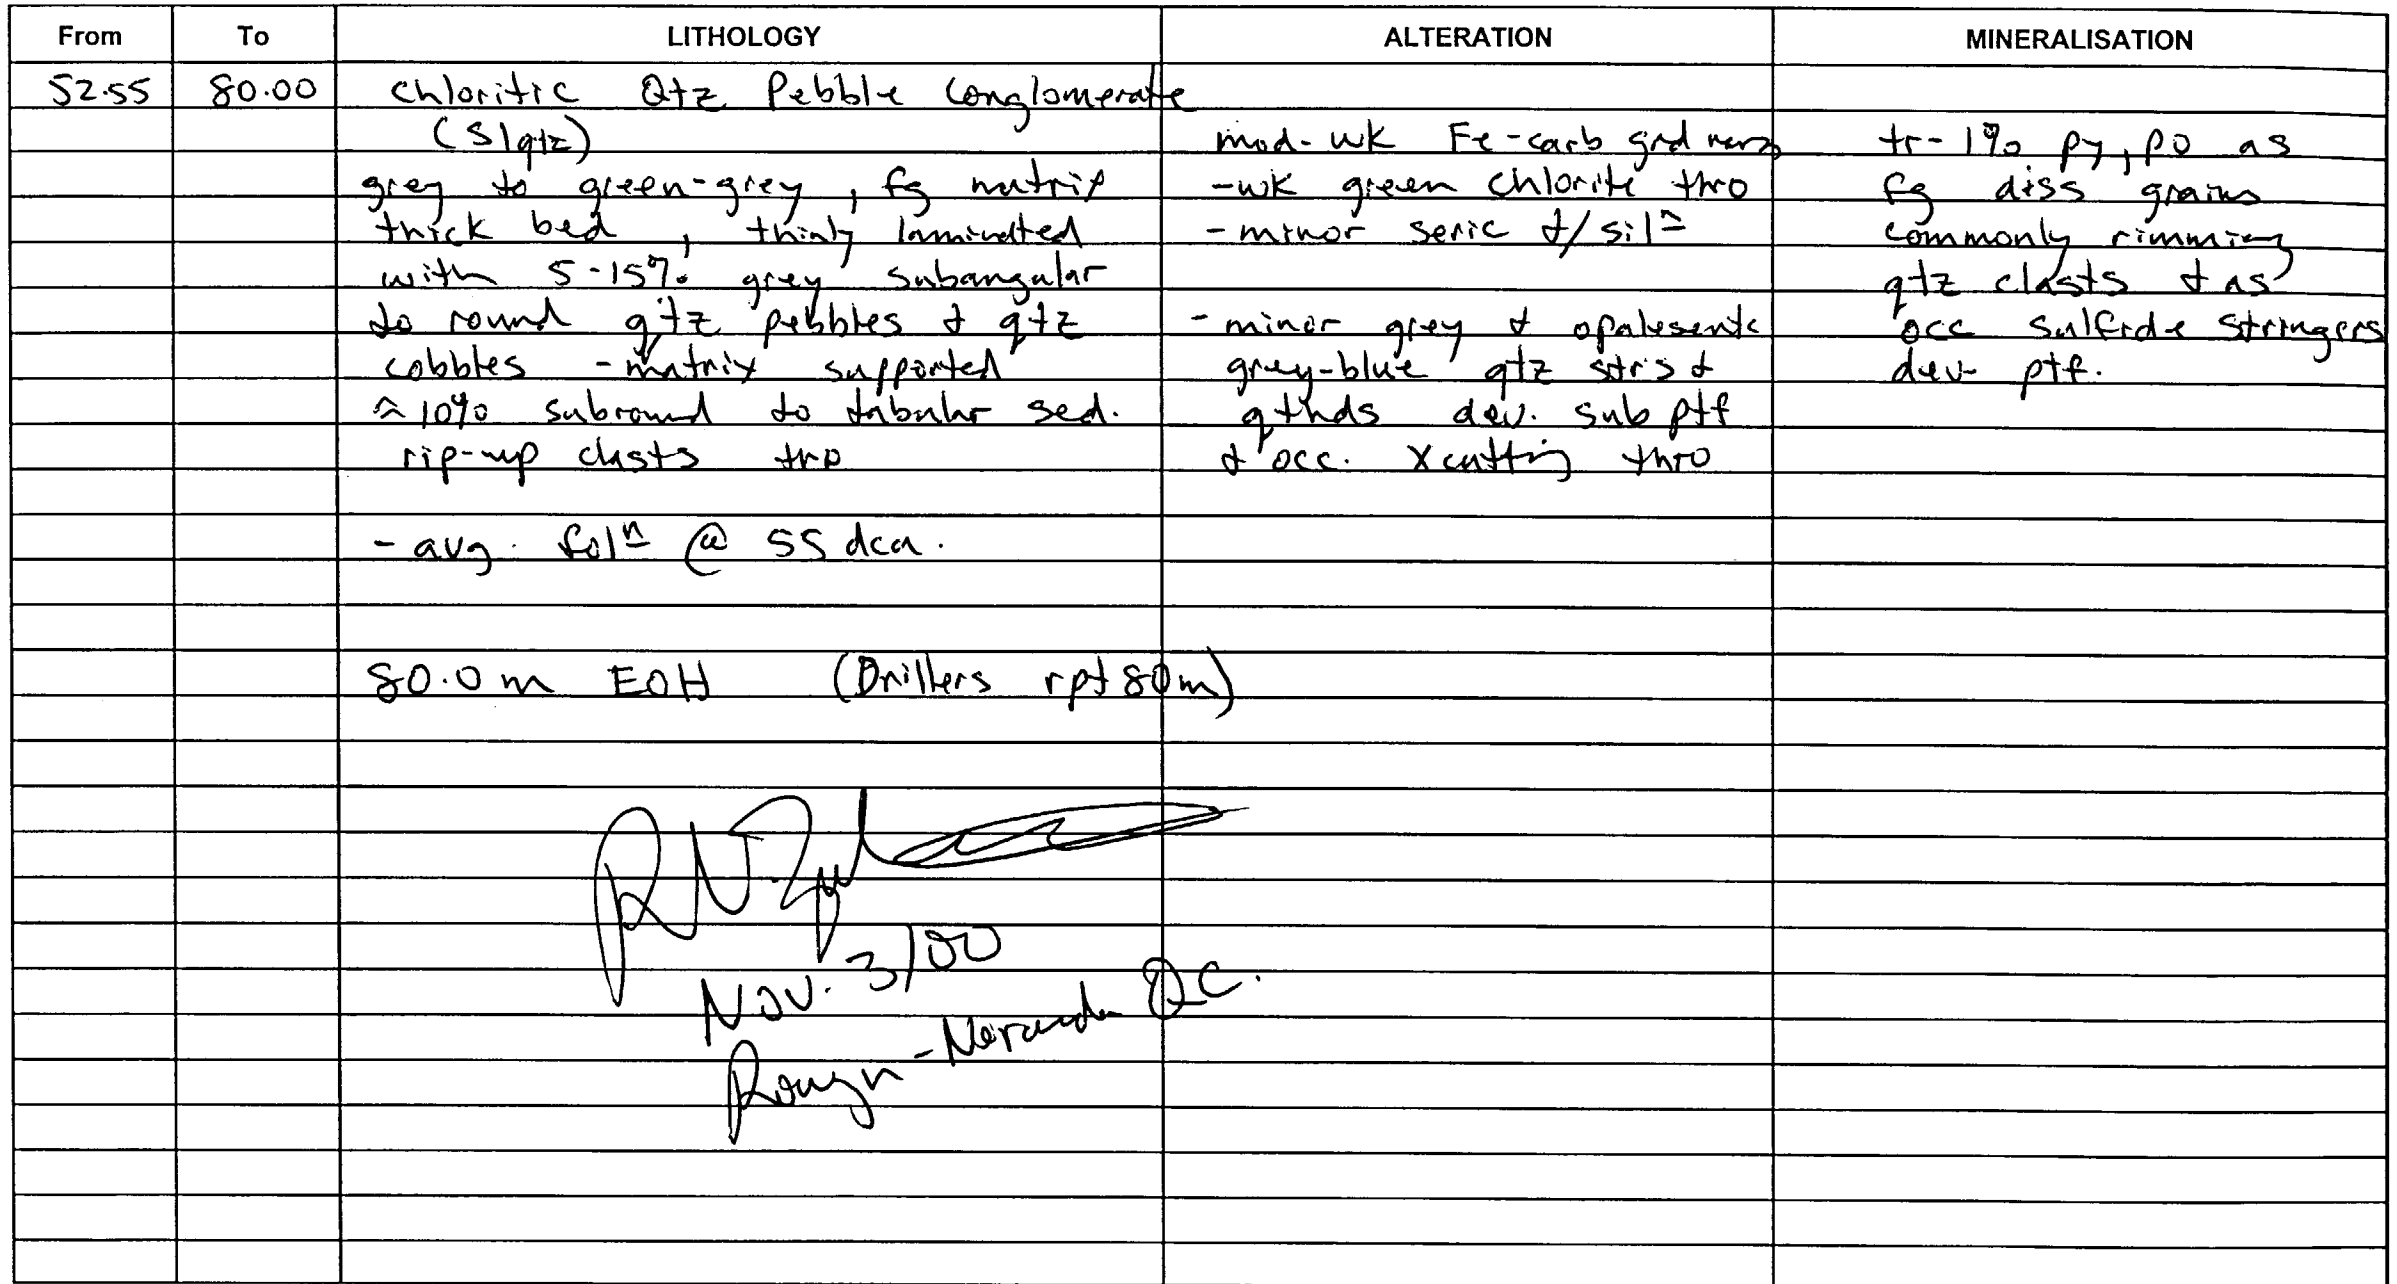 From To LITHOLOGY ALTERATION MINERALISATION
52.55 80.00 Chloritic Qtz Pebble Conglomerate
(S1qtz)
grey to green-grey, fg matrix
thick bed, thinly laminated
with 5-15% grey subangular
to round qtz pebbles & qtz
cobbles - matrix supported
≈ 10% subround to tabular sed.
rip-up clasts tro
- avg. folⁿ @ 55 dca.
80.0m EOH (Drillers rpt 80m)
mod-wk Fe-carb grd
- wk green chlorite thro
- minor seric &/silⁿ
- minor grey & opalesentc
grey-blue qtz strs &
qtnds dev. sub ptf
& occ. Xcutting thro
tr-1% py, po as
fg diss grains
commonly rimming
qtz clasts & as
occ sulfide stringers
dev ptf.
Nov. 3/00
Rouyn-Noranda QC.